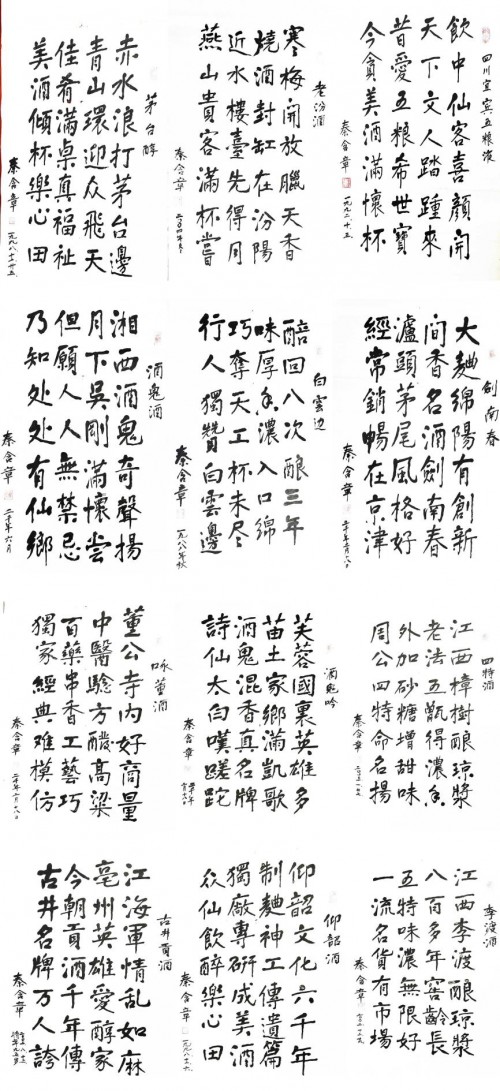 四川宜宾五粮液
飲中仙客喜顏開
天下文人踏踵來
昔愛五粮希世寶
今貪美酒滿懷杯
秦含章
老汾酒
寒梅開放臘天香
燒酒封缸在汾陽
近水樓臺先得月
燕山貴客滿杯嘗
秦含章
茅台醇
赤水浪打茅台邊
青山環迎众飛天
佳肴滿桌真福祉
美酒傾杯樂心田
秦含章
劍南春
大麯綿陽有創新
間香名酒劍南春
瀘頭茅尾風格好
經常銷暢在京津
秦含章
白雲边
醅回八次酿三年
味厚香濃入口綿
巧奪天工杯未尽
行人獨贊白雲邊
秦含章 一九八八年秋
酒鬼酒
湘西酒鬼奇聲揚
月下吳剛滿懷尝
但願人人無禁忌
乃知处处有仙鄉
秦含章 二〇〇〇年六月
四特酒
江西樟樹酿琼漿
老法五甑得濃香
外加砂糖增甜味
周公四特命名揚
秦含章
酒鬼吟
芙蓉國裏英雄多
苗土家鄉滿凱歌
酒鬼混香真名牌
詩仙太白嘆蹉跎
秦含章
咏董酒
董公寺内好商量
中醫驗方酸高梁
百藥串香工藝巧
獨家經典难模仿
秦含章
李渡酒
江西李渡酿琼漿
八百多年窖齡長
五特味濃無限好
一流名貨有市場
秦含章
仰韶酒
仰韶文化六千年
制麯神工傳遺篇
獨廠專研成美酒
众仙飲醉樂心田
秦含章
古井貢酒
江海軍情乱如麻
亳州英雄愛醇家
今朝貢酒千年傳
古井名牌万人誇
秦含章